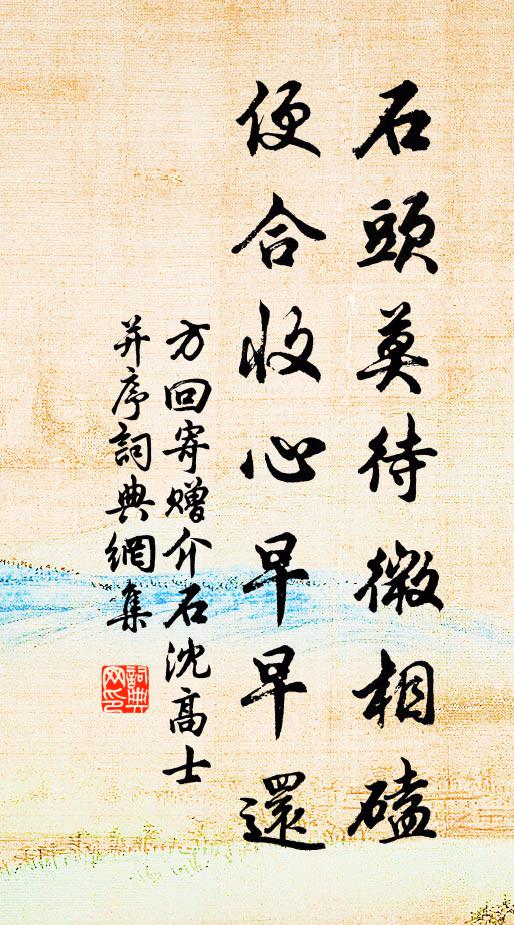 石頭莫待微相磕
便合收心早早還
方回寄贈介石沈高士
并序詞典網集
詞典網印